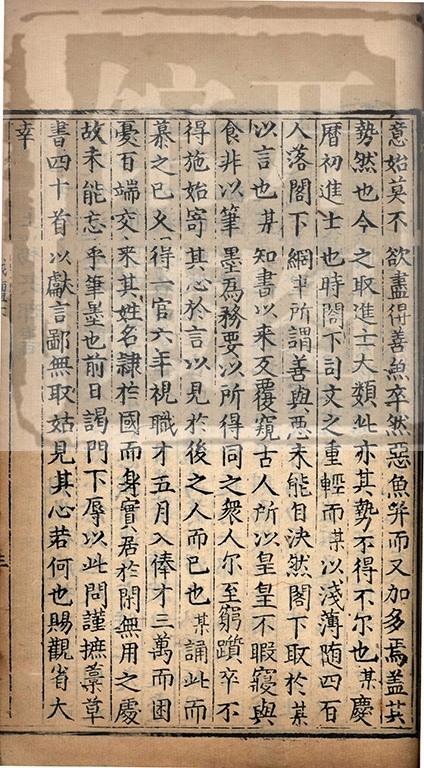 意始莫不欲盡得善魚卒然惡魚筭而又加多焉盖其
勢然也今之取進士大類此亦其勢不得不尔也某慶
曆初進士也時閤下司文之重輕而某以淺薄随四百
人落閤下網中所謂善與惡未能自决然閤下取於某
以言也某知書以来反覆窺古人所以皇皇不暇寝與
食非以筆墨爲務要以所得同之衆人尔至窮躓卒不
得施始寄其心於言以見於後之人而已也某誦此而
慕之已久得一官六年視職才五月入俸才三萬而困
憂百端交来其姓名隷於國而身實居於閑無用之處
故未能忘乎筆墨也前日謁門下辱以此問謹摭藁草
書四十首以獻言鄙無取姑見其心若何也賜觀省大
幸